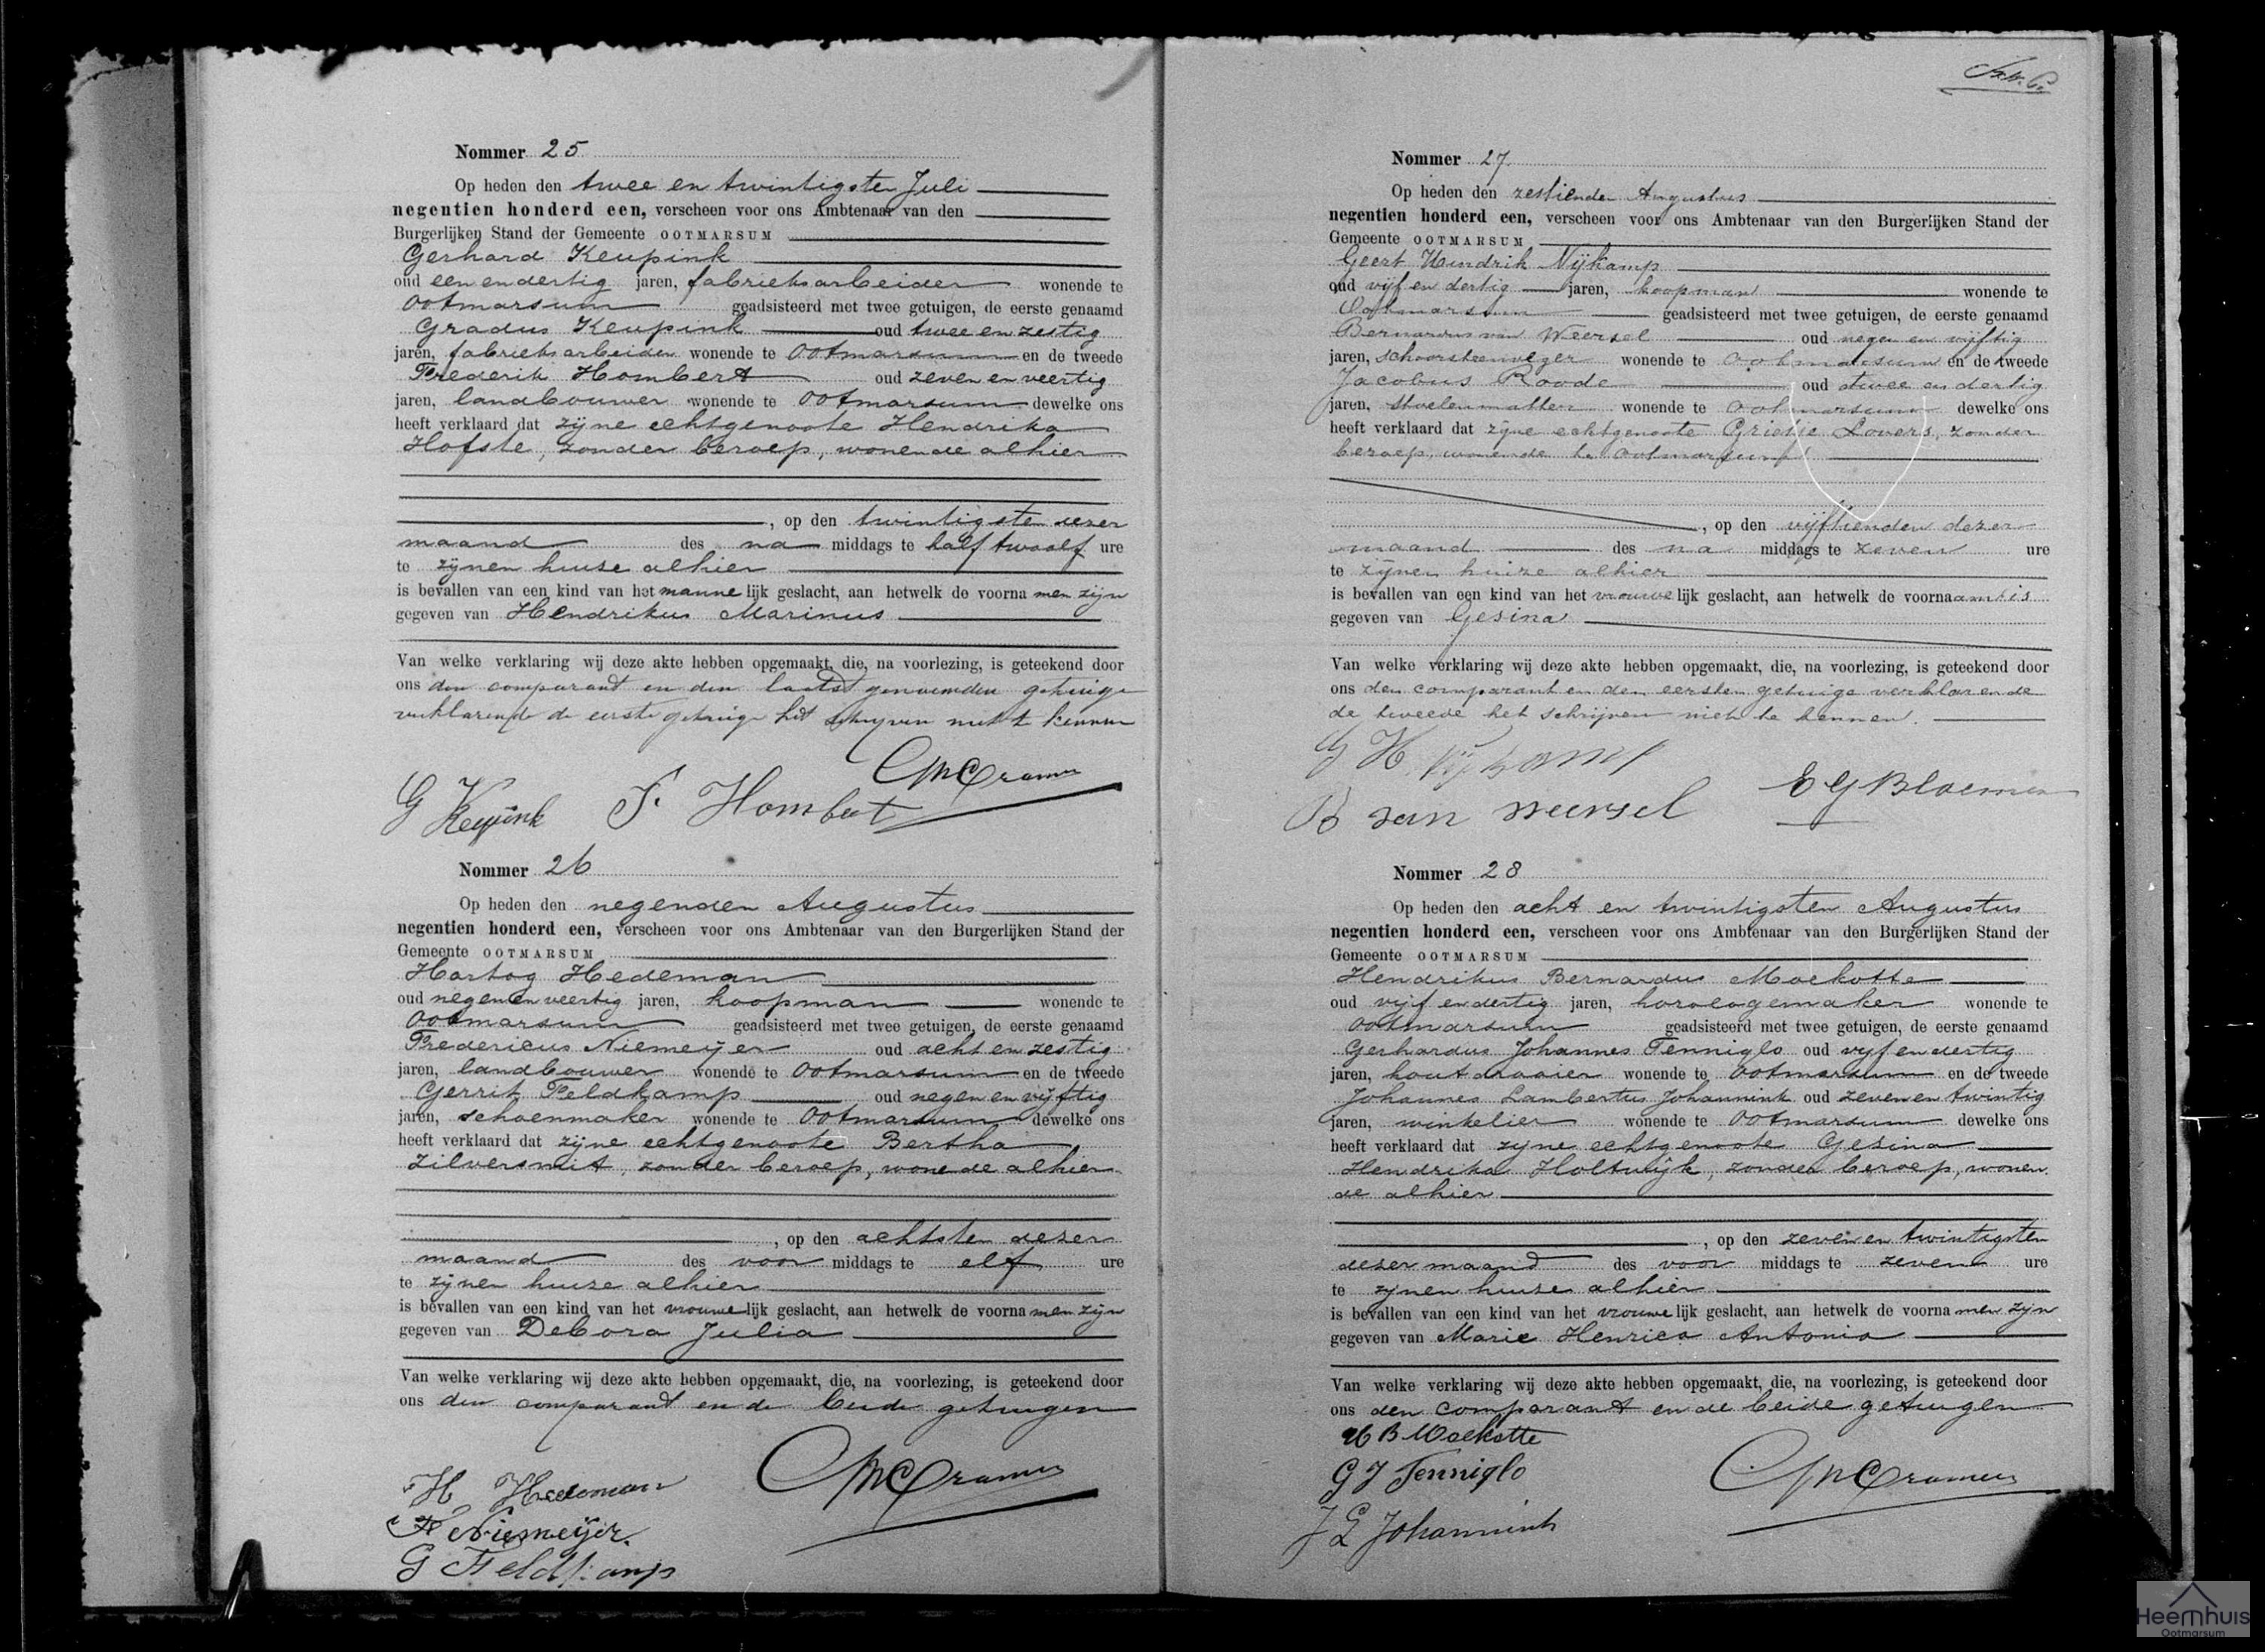 Nommer 25
Op heden den twee en twintigsten Juli
negentien honderd een, verscheen voor ons Ambtenaar van den
Burgerlijken Stand der Gemeente OOTMARSUM
Gerhard Keupink
oud een en dertig jaren, fabrieksarbeider wonende te
Ootmarsum geadsisteerd met twee getuigen, de eerste genaamd
Gradus Keupink oud twee en zestig
jaren, fabrieksarbeider wonende te Ootmarsum en de tweede
Frederik Hombert oud zeven en veertig
jaren, landbouwer wonende te Ootmarsum dewelke ons
heeft verklaard dat zijne echtgenoote Hendrika
Hofste, zonder beroep, wonende alhier
, op den twintigsten dezer
maand des na middags te half twaalf ure
te zijnen huise alhier
is bevallen van een kind van het mannelijk geslacht, aan hetwelk de voornamen zijn
gegeven van Hendrikus Marinus
Van welke verklaring wij deze akte hebben opgemaakt, die, na voorlezing, is geteekend door
ons den comparant en den laatst genoemden getuige
verklarende de eerste getuige het schrijven niet te kennen
CMCramer
G Keupink F. Hombert
Nommer 26
Op heden den negenden Augustus
negentien honderd een, verscheen voor ons Ambtenaar van den Burgerlijken Stand der
Gemeente OOTMARSUM
Hartog Hedeman
oud negen en veertig jaren, koopman wonende te
Ootmarsum geadsisteerd met twee getuigen, de eerste genaamd
Fredericus Niemeijer oud acht en zestig
jaren, landbouwer wonende te Ootmarsum en de tweede
Gerrit Feldkamp oud negen en vijftig
jaren, schoenmaker wonende te Ootmarsum dewelke ons
heeft verklaard dat zijne echtgenoote Bertha
Zilversmit, zonder beroep, wonende alhier
, op den achtsten dezer
maand des voor middags te elf ure
te zijnen huize alhier
is bevallen van een kind van het vrouwelijk geslacht, aan hetwelk de voornamen zijn
gegeven van Debora Julia
Van welke verklaring wij deze akte hebben opgemaakt, die, na voorlezing, is geteekend door
ons den comparant en de beide getuigen
H Hedeman CMCramer
F Niemeijer.
G Feldkamp
Nommer 27
Op heden den zestienden Augustus
negentien honderd een, verscheen voor ons Ambtenaar van den Burgerlijken Stand der
Gemeente OOTMARSUM
Geert Hendrik Nijkamp
oud vijf en dertig jaren, koopman wonende te
Ootmarsum geadsisteerd met twee getuigen, de eerste genaamd
Bernardus van Weersel oud negen en vijftig
jaren, schoorsteenveger wonende te Ootmarsum en de tweede
Jacobus Roode oud twee en dertig
jaren, stoelenmatter wonende te Ootmarsum dewelke ons
heeft verklaard dat zijne echtgenoote Grietje Lovers, zonder
beroep, wonende te Ootmarsum
, op den vijftienden dezer
maand des na middags te zeven ure
te zijnen huize alhier
is bevallen van een kind van het vrouwelijk geslacht, aan hetwelk de voornaam is
gegeven van Gesina
Van welke verklaring wij deze akte hebben opgemaakt, die, na voorlezing, is geteekend door
ons den comparant en den eersten getuige verklarende
de tweede het schrijven niet te kennen.
G H Nijkamp
B van Weersel E G Bloemen
Nommer 28
Op heden den acht en twintigsten Augustus
negentien honderd een, verscheen voor ons Ambtenaar van den Burgerlijken Stand der
Gemeente OOTMARSUM
Hendrikus Bernardus Moekotte
oud vijf en dertig jaren, horologemaker wonende te
Ootmarsum geadsisteerd met twee getuigen, de eerste genaamd
Gerhardus Johannes Tenniglo oud vijf en dertig
jaren, houtdraaier wonende te Ootmarsum en de tweede
Johannes Lambertus Johannink oud zeven en twintig
jaren, winkelier wonende te Ootmarsum dewelke ons
heeft verklaard dat zijne echtgenoote Gesina
Hendrika Holtwijk, zonder beroep, wonen
de alhier
, op den zeven en twintigsten
dezer maand des voor middags te zeven ure
te zijnen huize alhier
is bevallen van een kind van het vrouwelijk geslacht, aan hetwelk de voornamen zijn
gegeven van Marie Henrica Antonia
Van welke verklaring wij deze akte hebben opgemaakt, die, na voorlezing, is geteekend door
ons den comparant en de beide getuigen
H B Moekotte
G J Tenniglo CMCramer
J L Johannink
Heemhuis
Ootmarsum